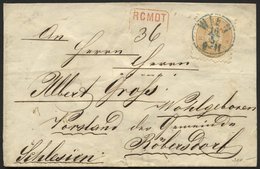 RCMDT
WIEN
An 36
Herrn
Herrn
Albert Groß
Wohlgeboren
Vorstand der Gemeinde
Schlesien. Röbersdorf